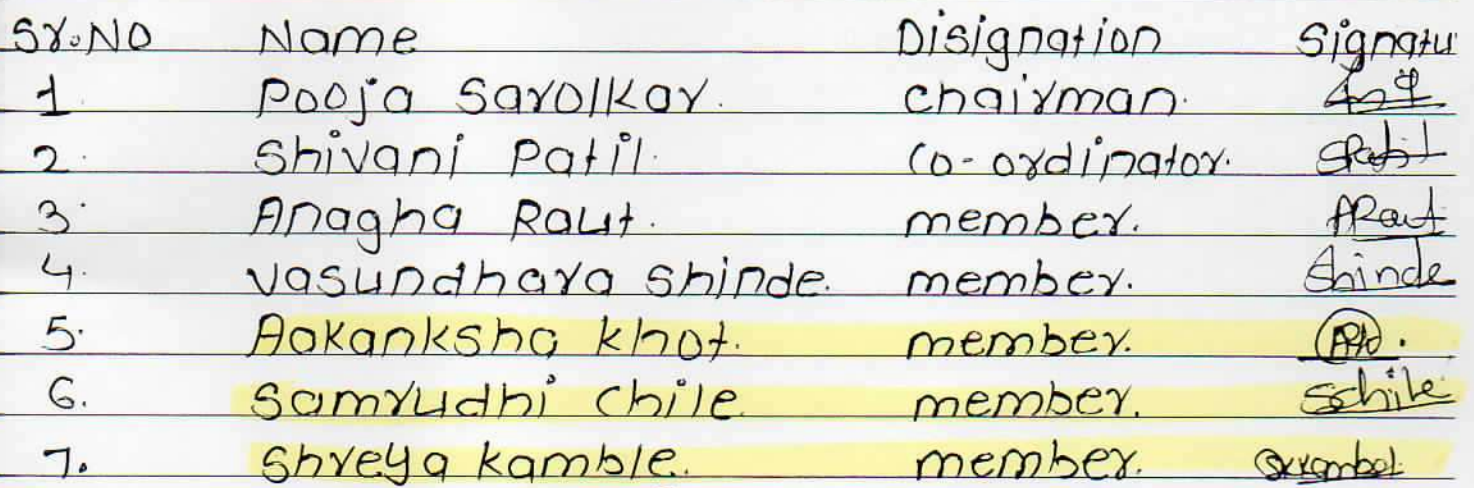 Sr.No Name Disignation Signatu
1. Pooja Sarolkar. chairman.
2. Shivani Patil. co-ordinator. SPatil
3. Anagha Raut. member. ARaut
4. Vasundhara Shinde. member. Shinde
5. Aakanksha khot. member.
6. Samrudhi Chile. member. Schile
7. Shreya kamble. member.